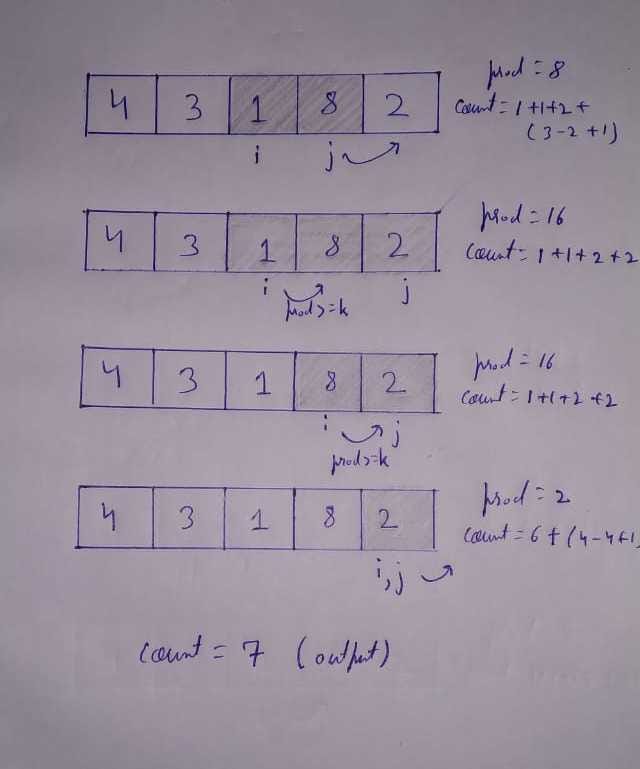 4 3 1 8 2
prod = 8
count = 1+1+2+
(3-2+1)
i j
4 3 1 8 2
prod = 16
count = 1+1+2+2
i j
prod>=k
4 3 1 8 2
prod = 16
count = 1+1+2+2
i j
prod>=k
4 3 1 8 2
prod = 2
count = 6+(4-4+1)
i,j
count = 7 (output)